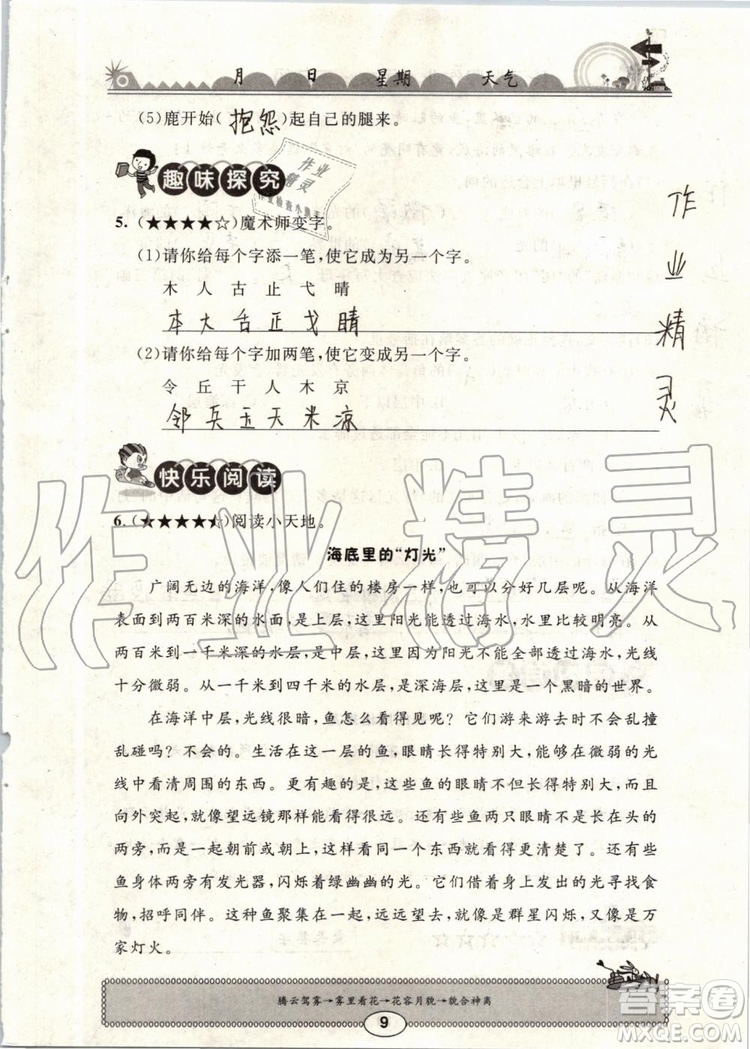 月 日 星期 天气
(5)鹿开始( 抱怨 )起自己的腿来。
趣味探究
作业精灵
5. (★★★★☆)魔术师变字。
(1)请你给每个字添一笔,使它成为另一个字。
木 人 古 止 弋 晴
本 大 舌 正 戈 睛
(2)请你给每个字加两笔,使它变成另一个字。
令 丘 干 人 木 京
邻 兵 玉 天 米 凉
作业精灵
快乐阅读
6. (★★★★⯪)阅读小天地。
海底里的“灯光”
广阔无边的海洋,像人们住的楼房一样,也可以分好几层呢。从海洋
表面到两百米深的水面,是上层,这里阳光能透过海水,水里比较明亮。从
两百米到一千米深的水层,是中层,这里因为阳光不能全部透过海水,光线
十分微弱。从一千米到四千米的水层,是深海层,这里是一个黑暗的世界。
在海洋中层,光线很暗,鱼怎么看得见呢?它们游来游去时不会乱撞
乱碰吗?不会的。生活在这一层的鱼,眼睛长得特别大,能够在微弱的光
线中看清周围的东西。更有趣的是,这些鱼的眼睛不但长得特别大,而且
向外突出,就像望远镜一样能看得很远。还有些鱼两只眼睛不长在头的
两旁,而是一起朝前或朝上,这样看同一个东西就看得更清楚了。还有些
鱼身体两旁有发光器,闪烁着绿幽幽的光。它们靠发出的亮光来寻找食
物,招呼同伴。这种鱼聚集在一起,远远望去,就像是群星闪烁,又像是万
家灯火。
作业精灵
腾云驾雾→雾里看花→花容月貌→貌合神离
9
答案圈
MXQE.COM